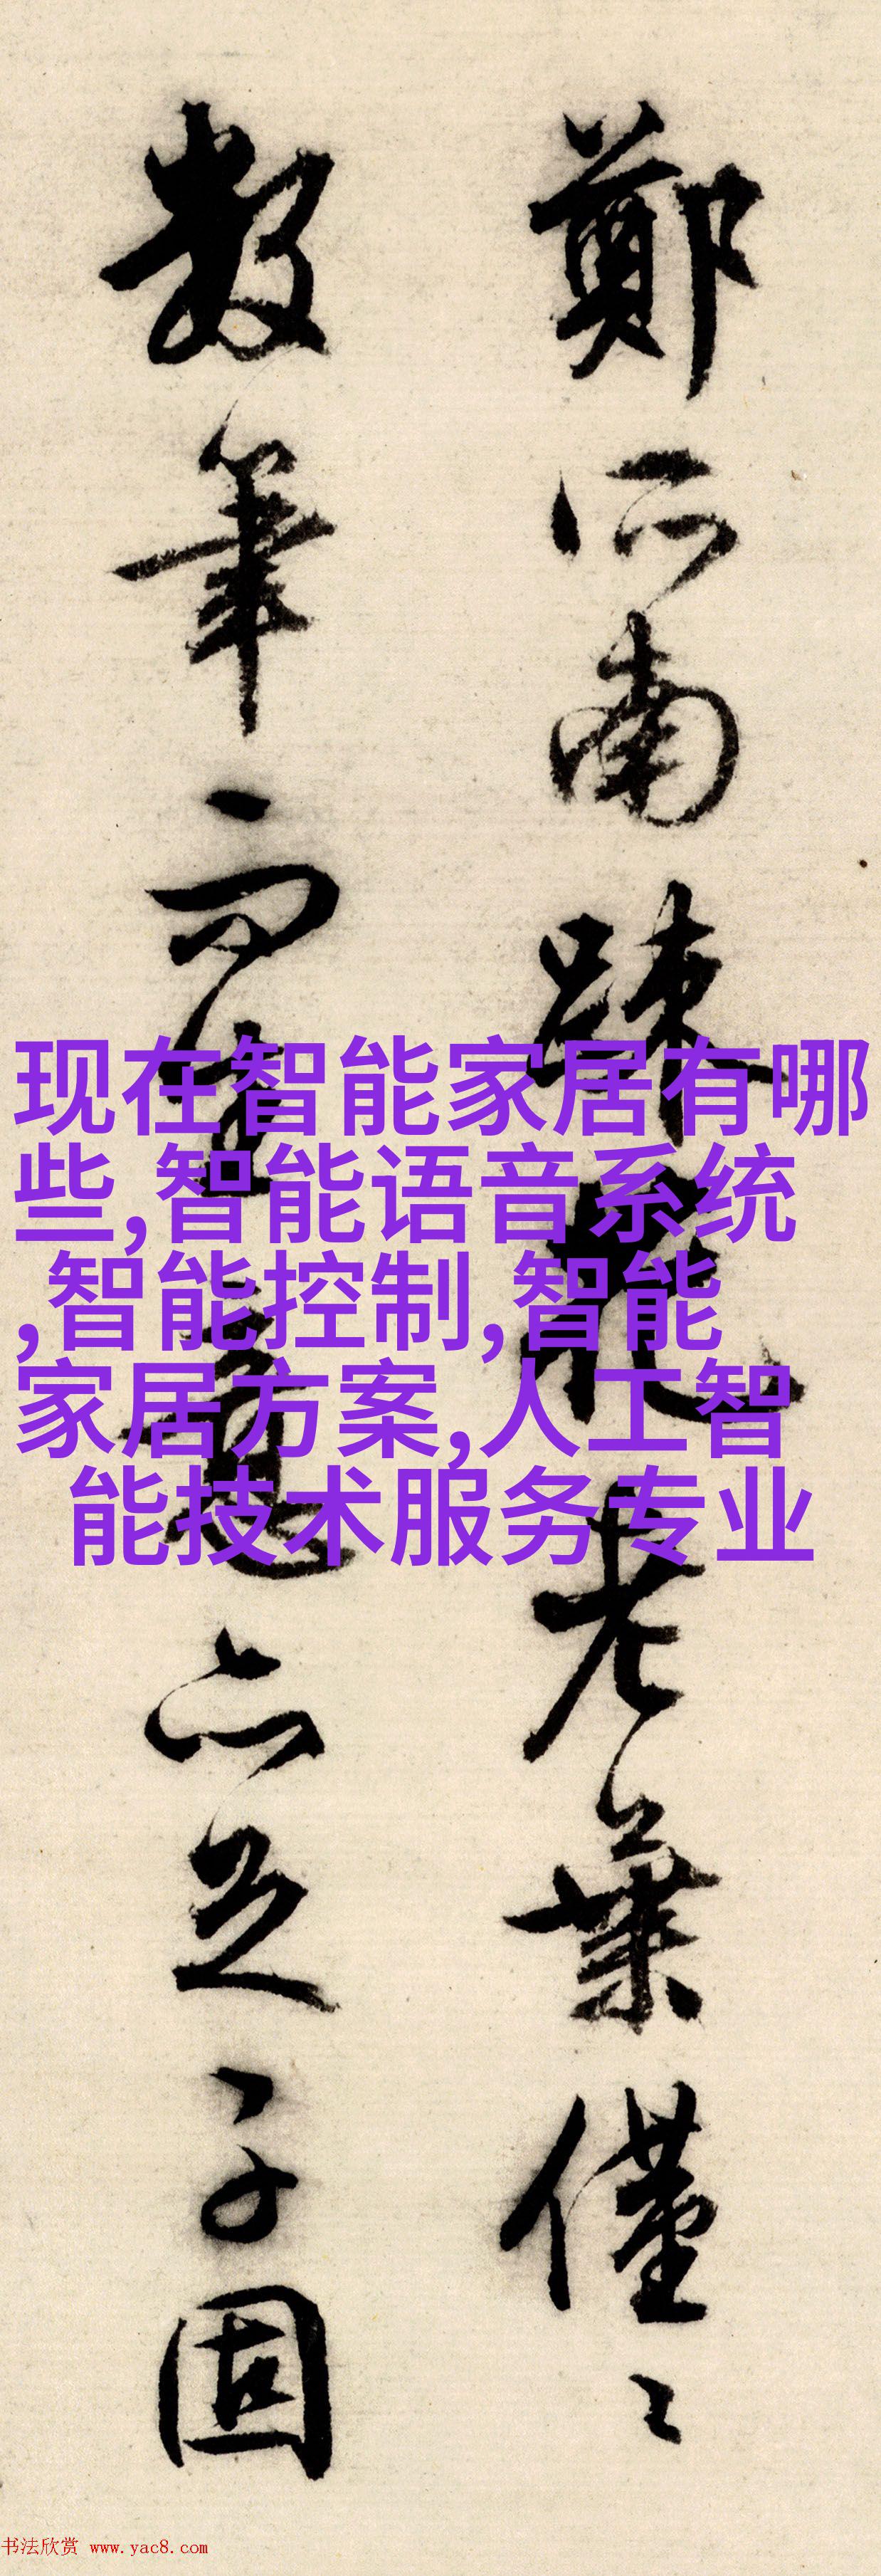 鄭所南疎花老葉僅〻
數筆而生意亦足予固
现在智能家居有哪
些,智能语音系统
,智能控制,智能
家居方案,人工智
能技术服务专业
书法欣赏 www.yac8.com